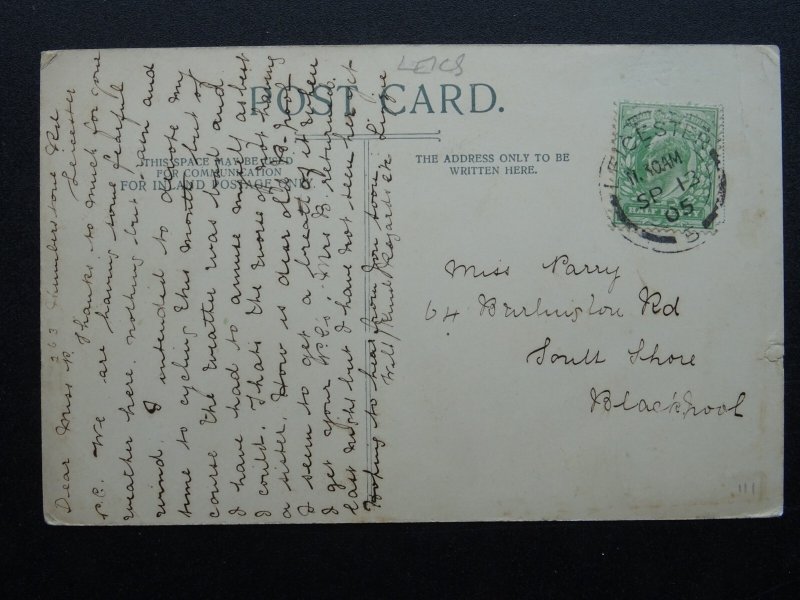 LEICS
POST CARD.
THIS SPACE MAY BE USED
FOR COMMUNICATION
FOR INLAND POSTAGE ONLY.
THE ADDRESS ONLY TO BE
WRITTEN HERE.
LEICESTER
11.40AM
SP 13
05
5
HALFPENNY
Miss Parry
64 Burlington Rd
South Shore
Blackpool
263 Humberstone Rd
Leicester
Dear Miss P. Thanks so much for your
P.C. We are having some fearful
weather here. nothing but rain and
wind. I intended to devote my
time to cycling this month but of
course the weather was bad and
I have had to amuse myself as best
I could. Thats the worse of not having
a sister. How is dear old B-pool.
I seem to get a breath of it when
I get your P.C's. Mrs B. returned
last night but I have not seen her yet
Hoping to hear from you soon
With Kind Regards
111